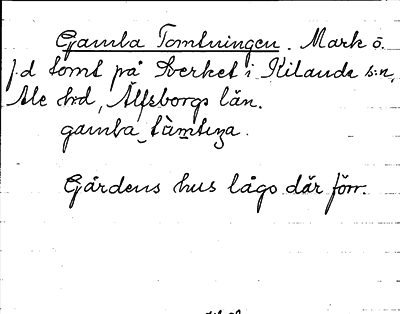 Gamla Tomtningen. Mark ö.
f.d tomt på Sverket i Kilanda s:n,
Ale hd, Älfsborgs län.
gamla tàmtıŋa.
Gårdens hus lågo där förr.